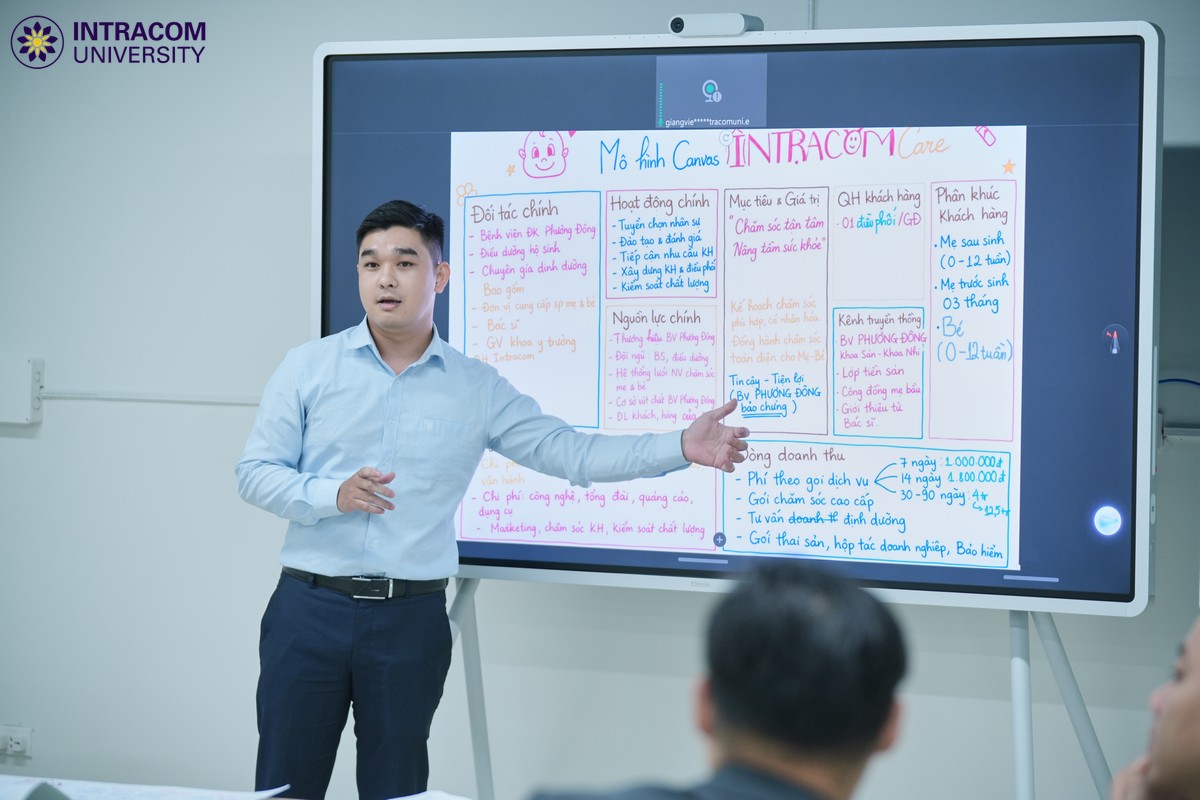 INTRACOM
UNIVERSITY
giangvie*****tracomuni.e
Mô hình Canvas INTRACOM Care
Đối tác chính
- Bệnh viện ĐK Phương Đông
- Điều dưỡng hộ sinh
- Chuyên gia dinh dưỡng
Bao gồm
- Đơn vị cung cấp sp mẹ & bé
- Bác sĩ
- GV khoa y trường
ĐH Intracom
Hoạt động chính
- Tuyển chọn nhân sự
- Đào tạo & đánh giá
- Tiếp cận nhu cầu KH
- Xây dựng KH & điều phối
- Kiểm soát chất lượng
Nguồn lực chính
- Thương hiệu BV Phương Đông
- Đội ngũ: BS, điều dưỡng
- Hệ thống lưới NV chăm sóc
mẹ & bé
- Cơ sở vật chất BV Phương Đông
- ĐL khách, hàng của
Mục tiêu & Giá trị
"Chăm sóc tận tâm
Nâng tầm sức khỏe"
Kế hoạch chăm sóc
phù hợp, cá nhân hóa
Đồng hành chăm sóc
toàn diện cho Mẹ-Bé
Tin cậy - Tiện lợi
(BV PHƯƠNG ĐÔNG
bảo chứng)
QH khách hàng
- 01 điều phối/GĐ
Kênh truyền thống
BV PHƯƠNG ĐÔNG
Khoa Sản - Khoa Nhi
- Lớp tiền sản
- Cộng đồng mẹ bầu
- Giới thiệu từ
Bác sĩ.
Phân khúc
Khách hàng
• Mẹ sau sinh
(0-12 tuần)
• Mẹ trước sinh
03 tháng
• Bé
(0-12 tuần)
Chi phí
vận hành
- Chi phí: công nghệ, tổng đài, quảng cáo,
dụng cụ
- Marketing, chăm sóc KH, kiểm soát chất lượng
Dòng doanh thu
- Phí theo gói dịch vụ
7 ngày: 1.000.000đ
14 ngày 1.800.000đ
30-90 ngày: 4tr
→ 12,5tr
- Gói chăm sóc cao cấp
- Tư vấn doanh th định dưỡng
- Gói thai sản, hộp tác doanh nghiệp, Bảo hiểm